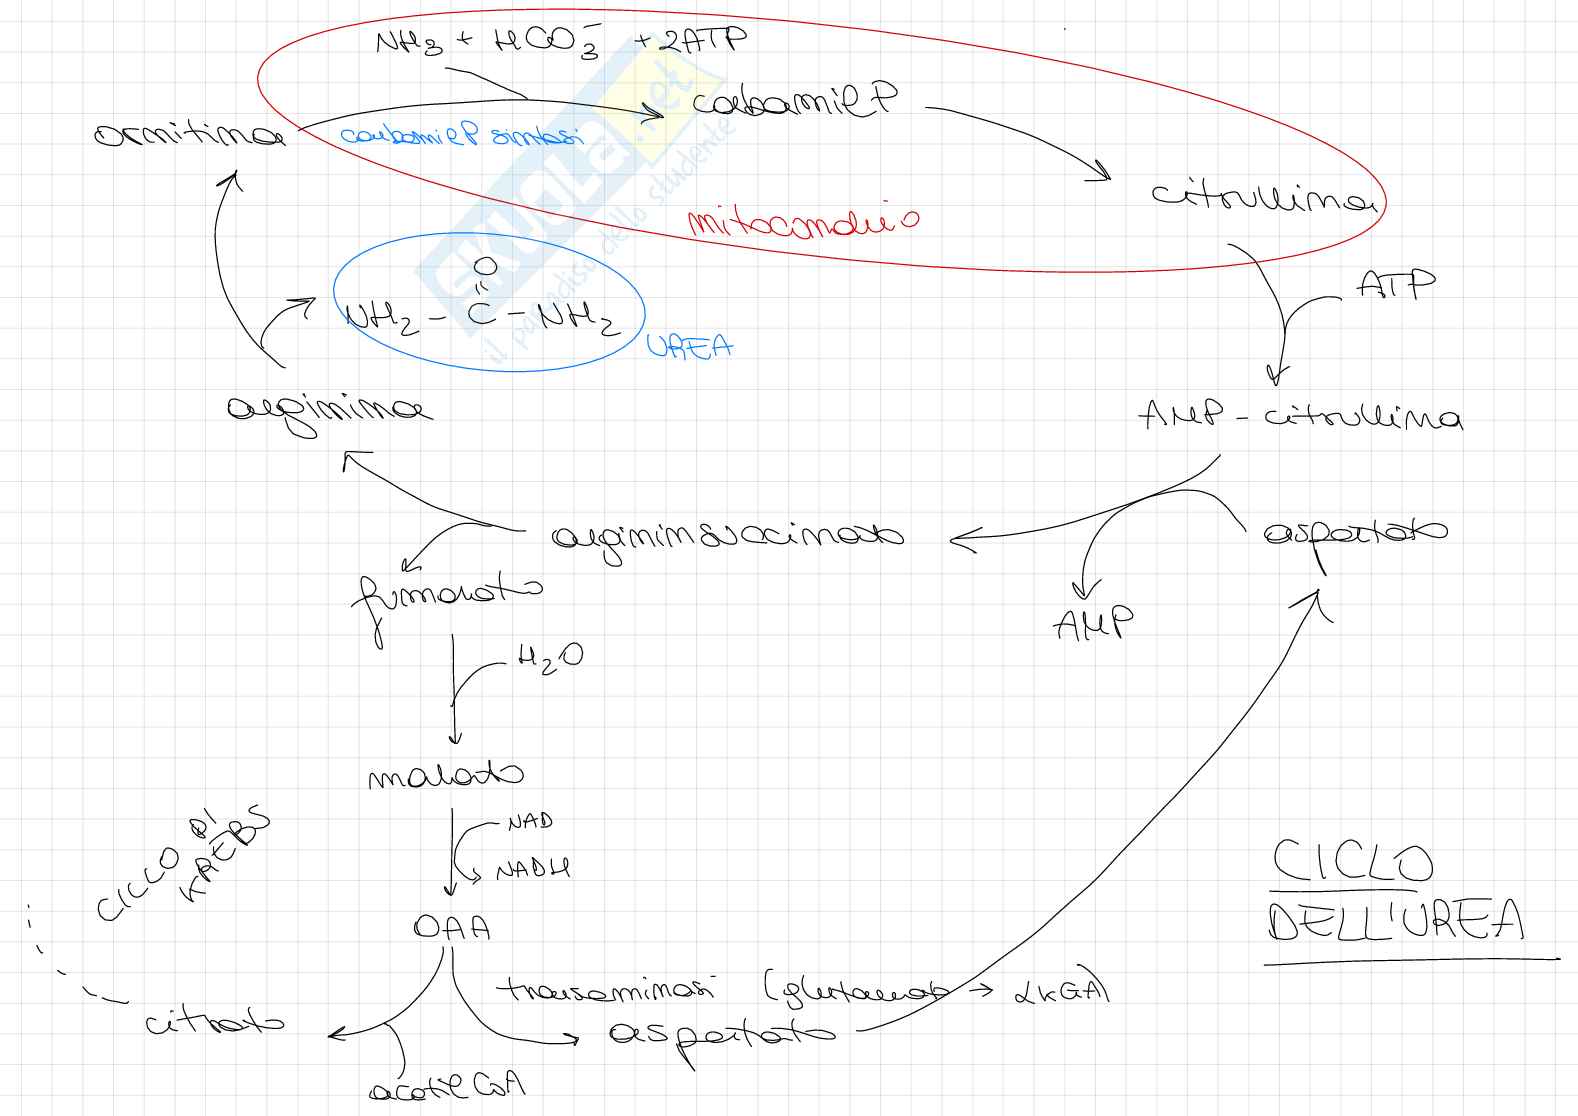 NH3 + HCO3- + 2ATP
ornitina
carbamilP sintasi
carbamilP
citrullina
mitocondrio
SKUOLA.net
il paradiso dello studente
O
NH2 - C - NH2
UREA
ATP
arginina
AMP - citrullina
argininsuccinato
aspartato
fumarato
AMP
H2O
malato
CICLO DI
KREBS
NAD
NADH
OAA
CICLO
DELL'UREA
transaminasi (glutammato → αKGA)
citrato
aspartato
acetil CoA